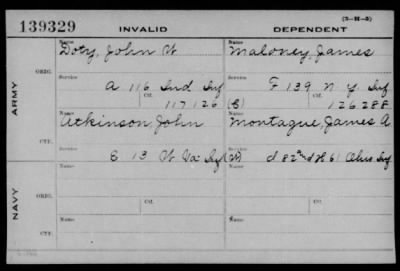 139329 INVALID (3-H-5) DEPENDENT
Name Name
Doty, John W Maloney, James
ARMY
ORIG.
Service Service
A 116 Ind Inf F 139 N Y Inf
Ctf. Ctf.
117126 (C) 126288
Name Name
Atkinson, John Montague, James A
CTF.
Service Service
C 13 W Va Inf (W) d 82nd & H 61 Ohio Inf
NAVY
ORIG.
Name Ctf. Name Ctf.
CTF.
Name Name